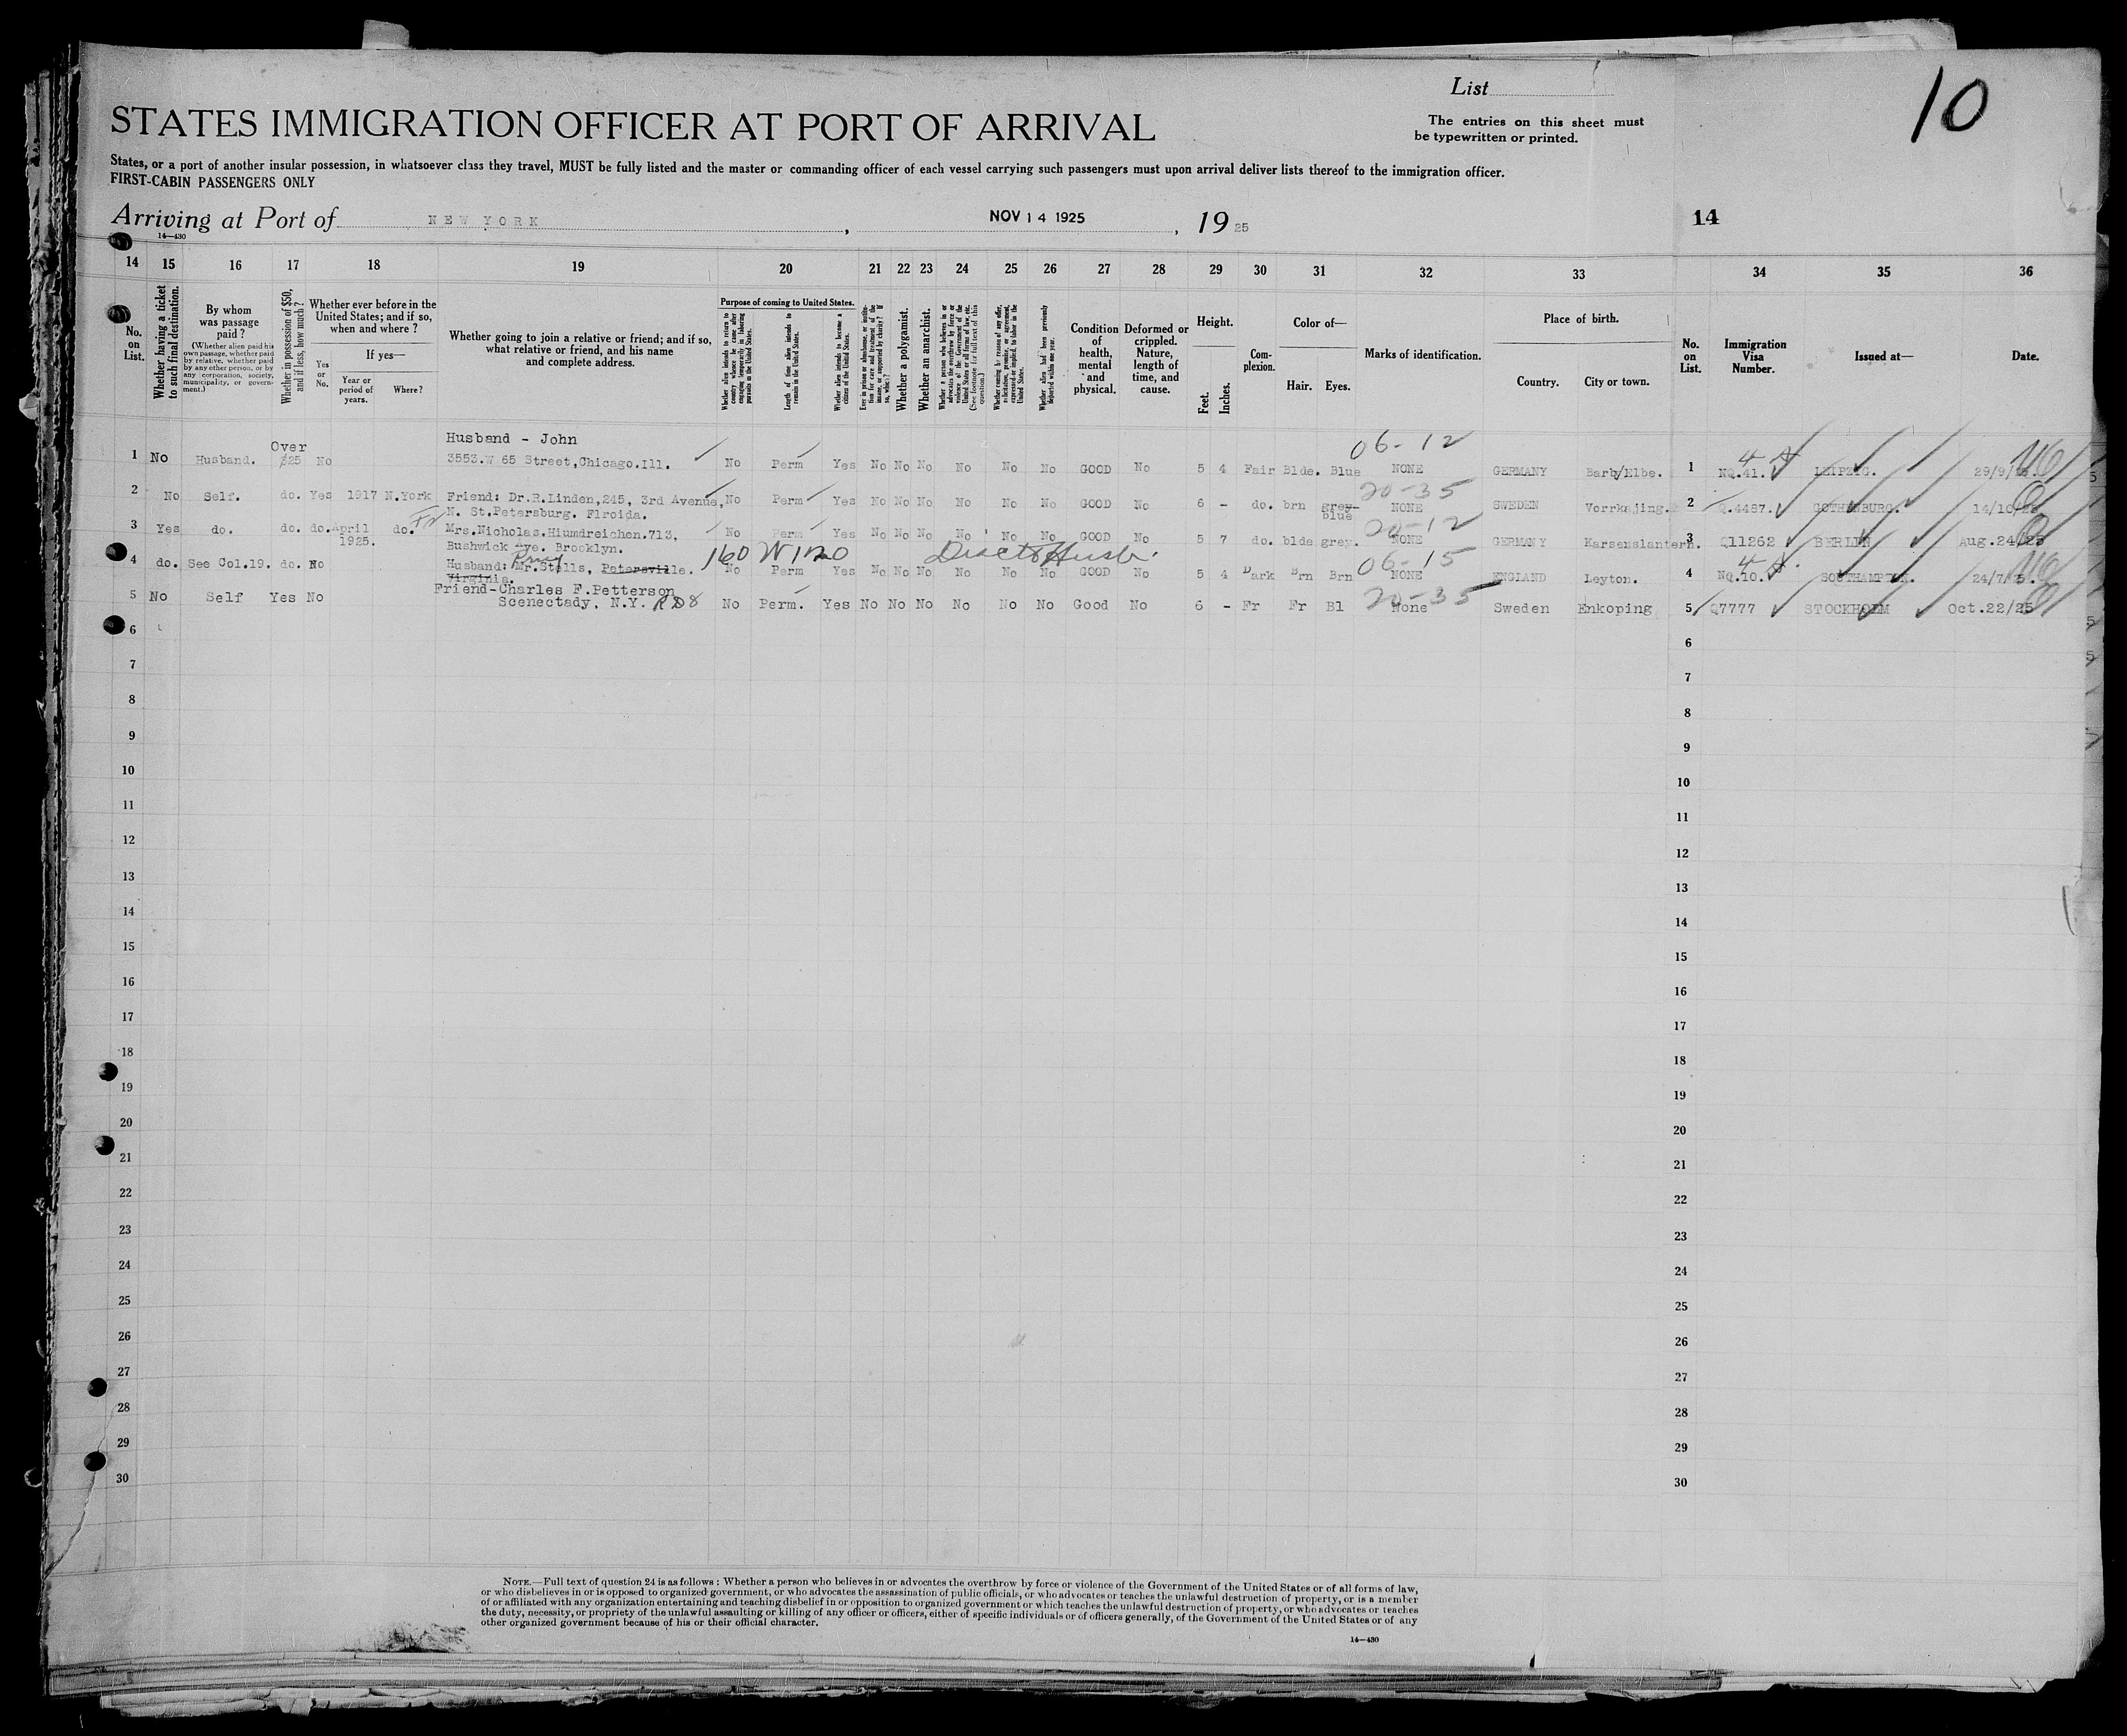 List
10
STATES IMMIGRATION OFFICER AT PORT OF ARRIVAL
The entries on this sheet must
be typewritten or printed.
States, or a port of another insular possession, in whatsoever class they travel, MUST be fully listed and the master or commanding officer of each vessel carrying such passengers must upon arrival deliver lists thereof to the immigration officer.
FIRST-CABIN PASSENGERS ONLY
Arriving at Port of NEW YORK, NOV 14 1925, 19 25
14
14—430
14 15 16 17 18 19 20 21 22 23 24 25 26 27 28 29 30 31 32 33 34 35 36
No. on List.
Whether having a ticket to such final destination.
By whom was passage paid?
(Whether alien paid his own passage, whether paid by relative, whether paid by any other person, or by any corporation, society, municipality, or government.)
Whether in possession of $50, and if less, how much?
Whether ever before in the United States; and if so, when and where?
Yes or No.
If yes—
Year or period of years.
Where?
Whether going to join a relative or friend; and if so, what relative or friend, and his name and complete address.
Purpose of coming to United States.
Whether alien intends to return to country whence he came after engaging temporarily in laboring pursuits in the United States.
Length of time alien intends to remain in the United States.
Whether alien intends to become a citizen of the United States.
Ever in prison or almshouse, or institution for care and treatment of the insane, or supported by charity? If so, which?
Whether a polygamist.
Whether an anarchist.
Whether a person who believes in or advocates the overthrow by force or violence of the Government of the United States or all forms of law, etc. (See footnote for full text of this question.)
Whether coming by reason of any offer, solicitation, promise, or agreement, expressed or implied, to labor in the United States.
Whether alien had been previously deported within one year.
Condition of health, mental and physical.
Deformed or crippled. Nature, length of time, and cause.
Height.
Feet.
Inches.
Complexion.
Color of—
Hair. Eyes.
Marks of identification.
Place of birth.
Country. City or town.
No. on List.
Immigration Visa Number.
Issued at—
Date.
Husband - John
1 No Husband. Over $25 No 3553.W 65 Street,Chicago.Ill. No Perm Yes No No No No No No GOOD No 5 4 Fair Blde. Blue 06-12 NONE GERMANY Barby/Elbe. 1 NQ.41. LEIPZIG.
2 No Self. do. Yes 1917 N.York Friend: Dr.R.Linden,245, 3rd Avenue, No Perm Yes No No No No No No GOOD No 6 - do. brn grey-blue 20-35 NONE SWEDEN 2 Q.4487. GOTHENBURG.
N. St.Petersburg. Flroida.
3 Yes do. do. do. April 1925. do. Mrs.Nicholas.Hiumdreichen.713, No Perm Yes No No No No No No GOOD No 5 7 do. blde grey. 20-12 NONE GERMANY Karsenslantern. 3 Q11262 BERLIN Aug.24/25
Bushwick Ave. Brooklyn.
160 W 1120 Disc to Husb.
4 do. See Col.19. do. No Husband: Mr.Stells, Patersville. No Perm Yes No No No No No No GOOD No 5 4 Dark Brn Brn 06-15 NONE ENGLAND Leyton. 4 NQ.10. SOUTHAMPTON.
Virginia.
Friend-Charles F.Petterson
5 No Self Yes No Scenectady, N.Y. No Perm. Yes No No No No No No Good No 6 - Fr Fr Bl 20-35 None Sweden Enkoping 5 Q7777 STOCKHOLM Oct.22/25
6 6
7 7
8 8
9 9
10 10
11 11
12 12
13 13
14 14
15 15
16 16
17 17
18 18
19 19
20 20
21 21
22 22
23 23
24 24
25 25
26 26
27 27
28 28
29 29
30 30
NOTE.—Full text of question 24 is as follows: Whether a person who believes in or advocates the overthrow by force or violence of the Government of the United States or of all forms of law,
or who disbelieves in or is opposed to organized government, or who advocates the assassination of public officials, or who advocates or teaches the unlawful destruction of property, or is a member
of or affiliated with any organization entertaining and teaching disbelief in or opposition to organized government or which teaches the unlawful destruction of property, or who advocates or teaches
the duty, necessity, or propriety of the unlawful assaulting or killing of any officer or officers, either of specific individuals or of officers generally, of the Government of the United States or of any
other organized government because of his or their official character.
14—430